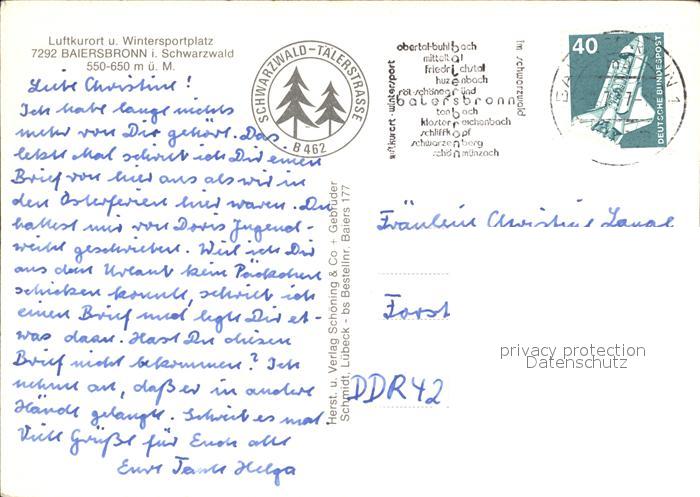 Luftkurort u. Wintersportplatz
7292 BAIERSBRONN i. Schwarzwald
550-650 m ü. M.
Liebe Christine!
Ich habe lange nichts
mehr von Dir gehört. Das
letzte Mal schrieb ich Dir einen
Brief von hier aus als wir in
den Osterferien hier waren. Du
hattest mir von Doris Jugend-
weihe geschrieben. Weil ich Dir
aus dem Urlaub kein Päckchen
schicken konnte, schrieb ich
einen Brief und legte Dir et-
was darin. Hast Du diesen
Brief nicht bekommen? Ich
nehme an, daß er in andere
Hände gelangte. Schreib es mal.
Viele Grüße für Euch alle
Eure Tante Helga
SCHWARZWALD-TÄLERSTRASSE
B 462
luftkurort · wintersport
obertal-buhlbach
mitteltal
friedrichstal
huzenbach
röt-schönegründ
baiersbronn
tonbach
klosterreichenbach
schliffkopf
schwarzenberg
schönmünzach
im schwarzwald
40
DEUTSCHE BUNDESPOST
Herst. u. Verlag Schöning & Co + Gebrüder
Schmidt, Lübeck - bs Bestellnr. Baiers 177
Fräulein Christine
Forst
DDR 42
privacy protection
Datenschutz